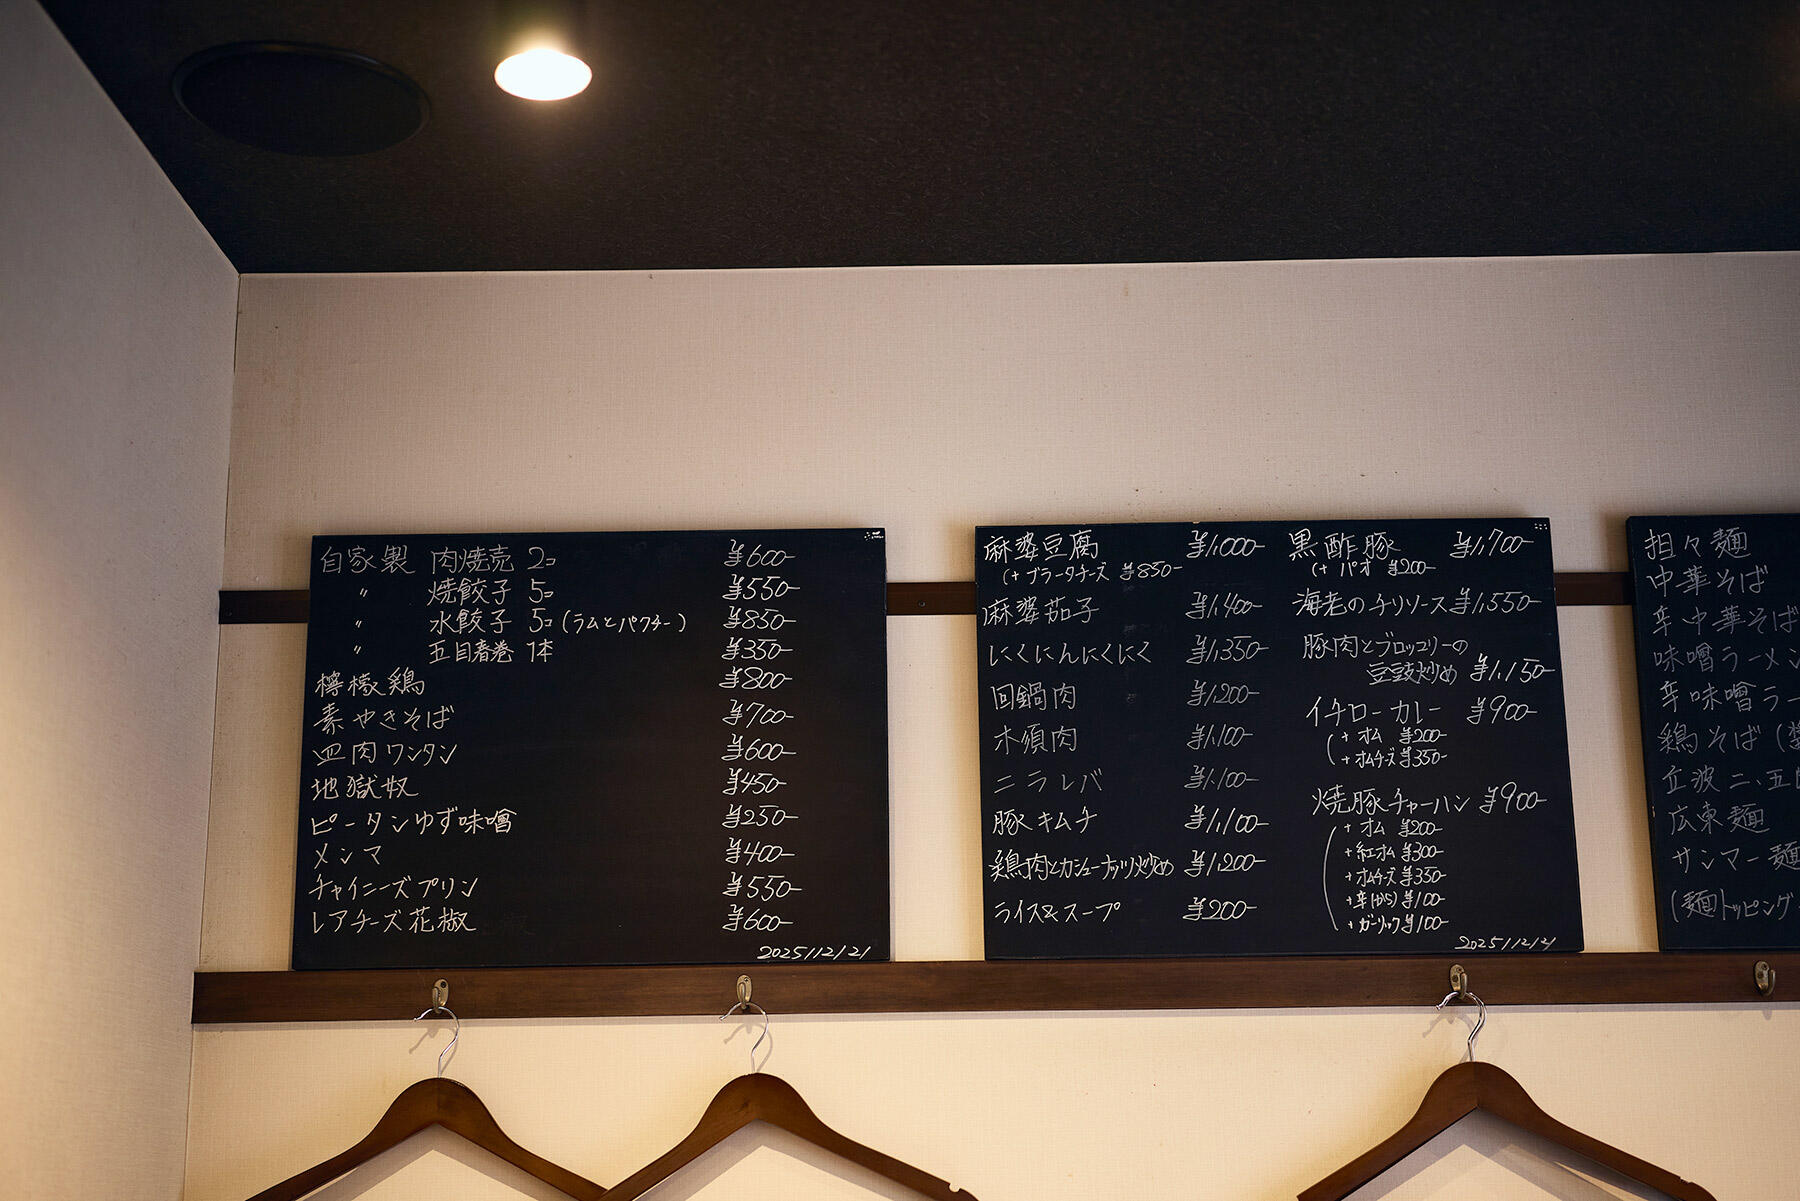 自家製 肉焼売 2コ ¥600-
〃 焼餃子 5コ ¥550-
〃 水餃子 5コ (ラムとパクチー) ¥850-
〃 五目春巻 1本 ¥350-
檸檬鶏 ¥800-
素やきそば ¥700-
皿肉ワンタン ¥600-
地獄奴 ¥450-
ピータンゆず味噌 ¥250-
メンマ ¥400-
チャイニーズプリン ¥550-
レアチーズ花椒 ¥600-
2025/12/21
麻婆豆腐 ¥1,000-
(+ブラータチーズ ¥850-
麻婆茄子 ¥1,400-
にくにんにくにく ¥1,350-
回鍋肉 ¥1,200-
木須肉 ¥1,100-
ニラレバ ¥1,100-
豚キムチ ¥1,100-
鶏肉とカシューナッツ炒め ¥1,200-
ライス&スープ ¥200-
黒酢豚 ¥1,700-
(+ パオ ¥200-
海老のチリソース ¥1,550-
豚肉とブロッコリーの
豆豉炒め ¥1,150-
イチローカレー ¥900-
(+ オム ¥200-
+ オムチーズ ¥350-
焼豚チャーハン ¥900-
(+ オム ¥200-
+ 紅オム ¥300-
+ オムチーズ ¥350-
+ 辛(から) ¥100-
+ ガーリック ¥100-
2025/12/21
担々麺
中華そば
辛中華そば
味噌ラーメン
辛味噌ラー
鶏そば (醤
立波二、五目
広東麺
サンマー麺
(麺トッピング